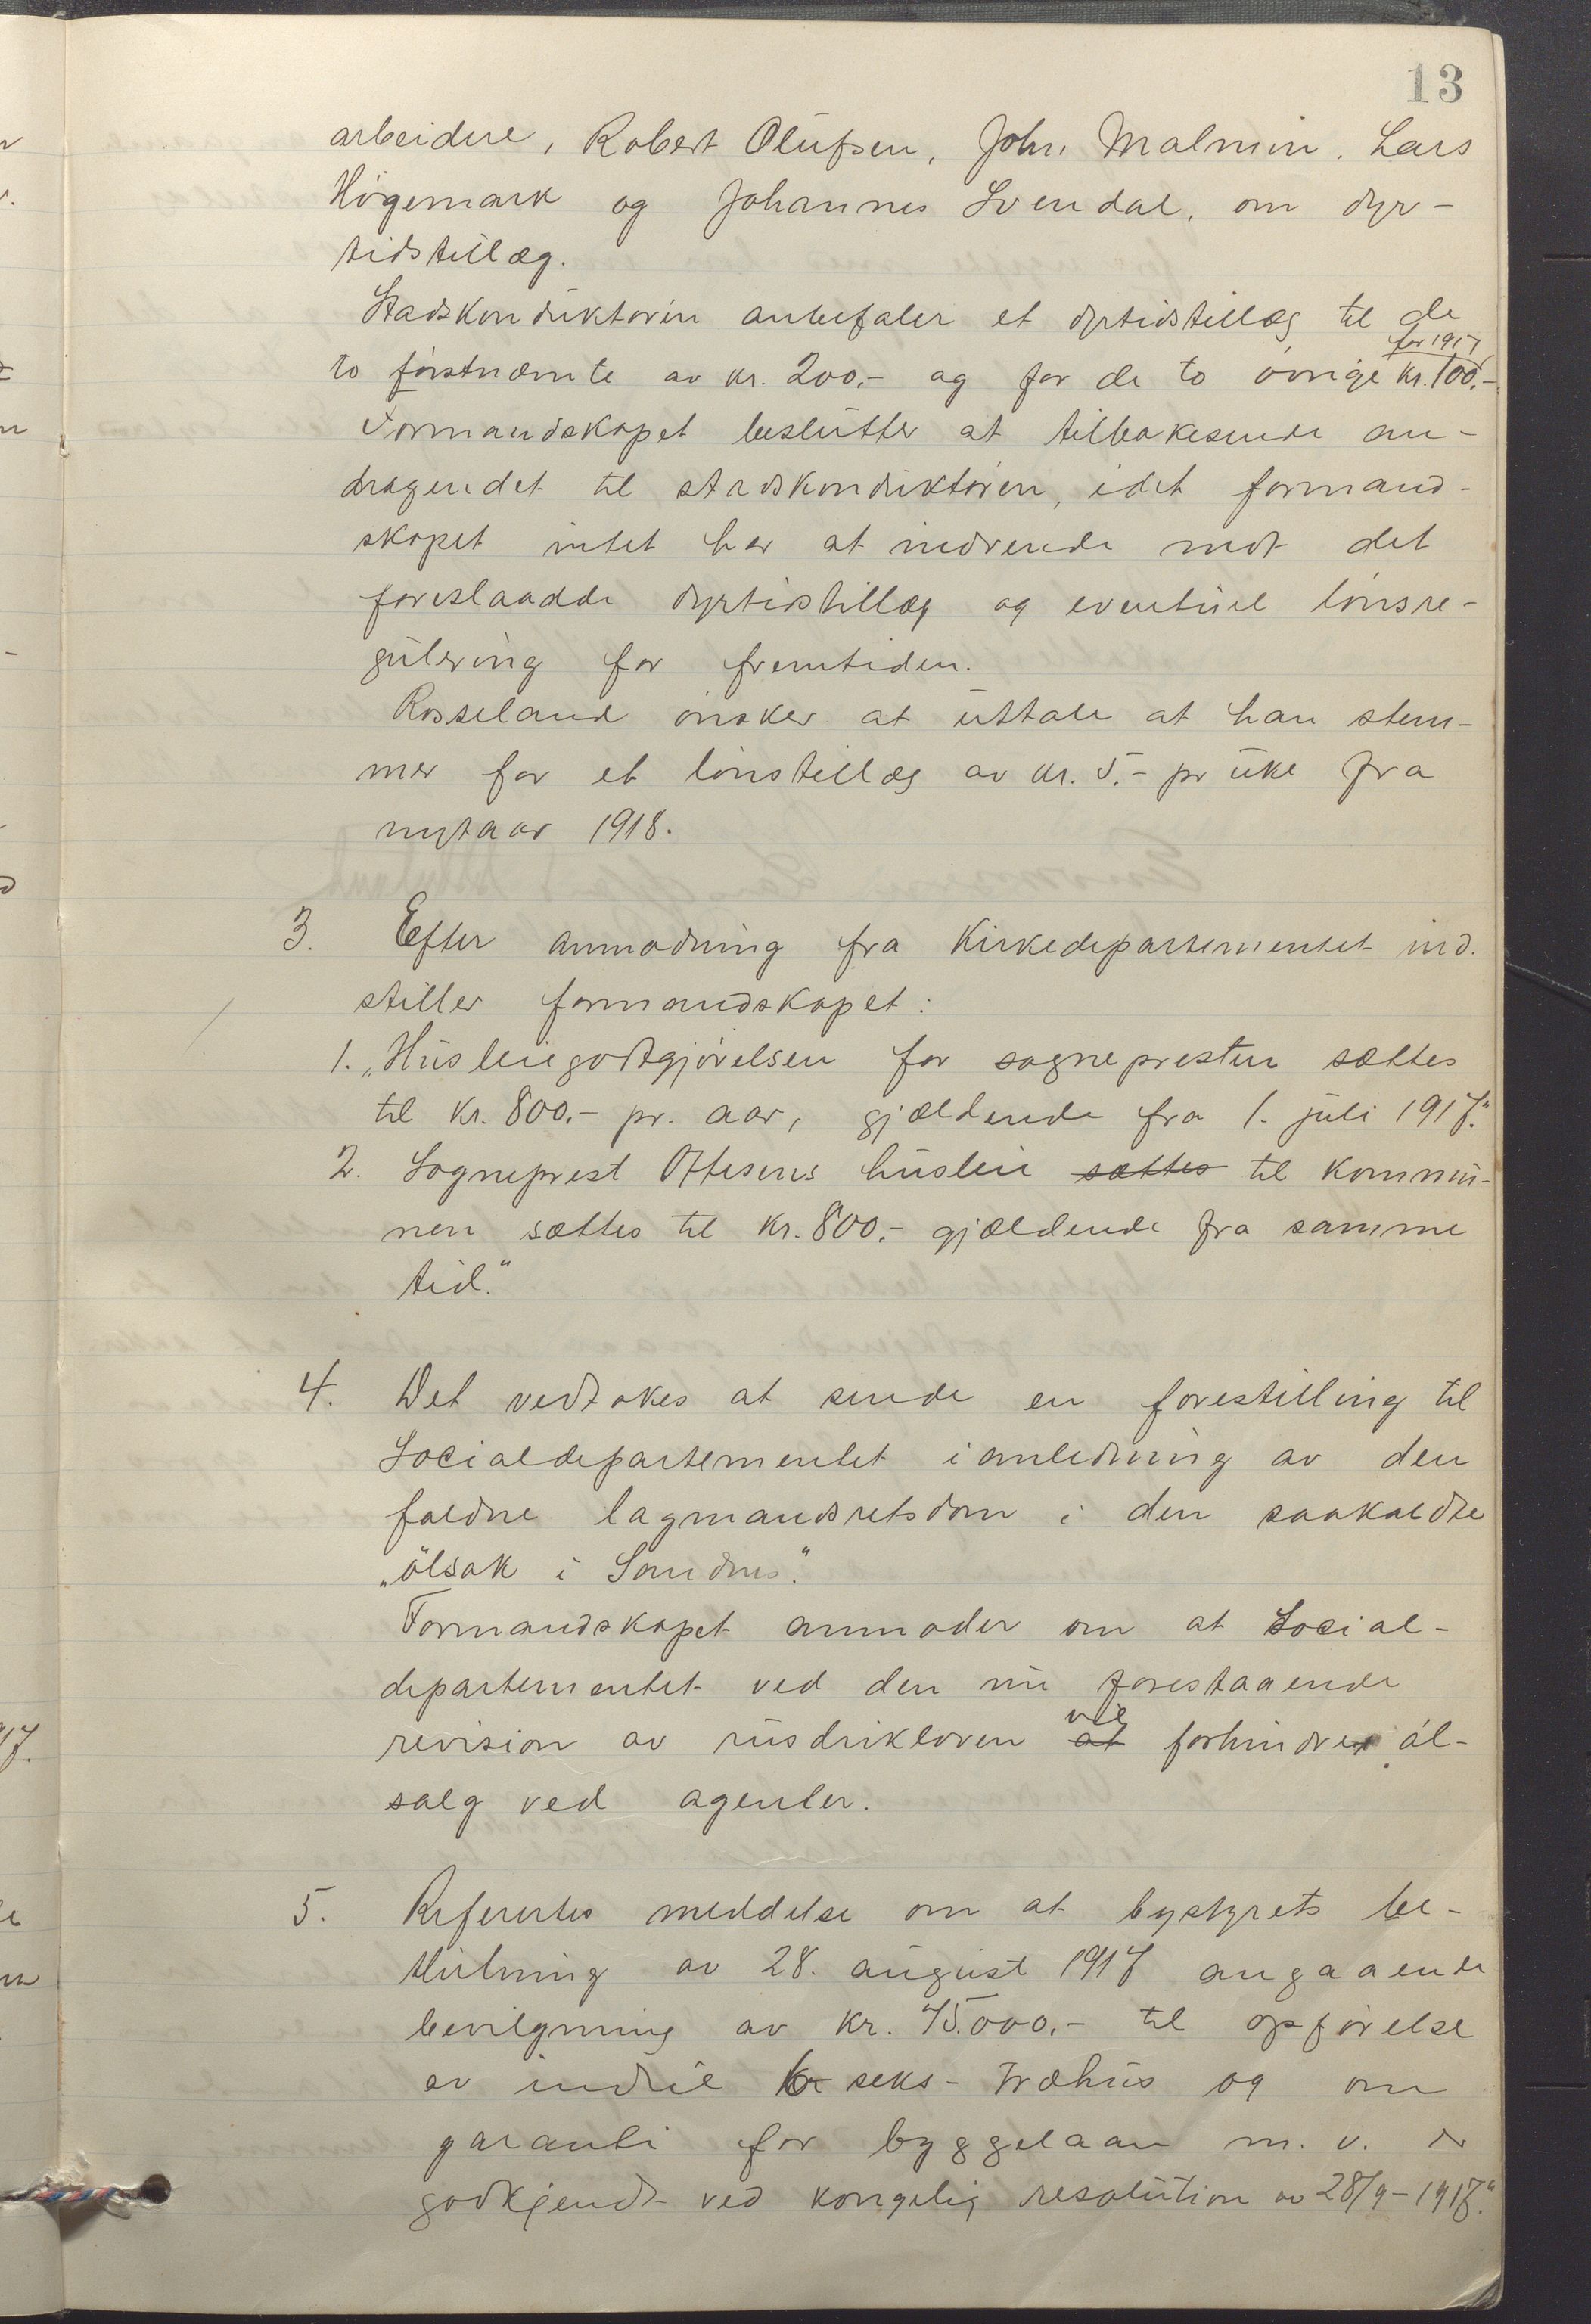 13
arbeidere, Robert Olufsen, John Malmin, Lars
Høgemark og Johannes Svendal, om dyr-
tidstillæg.
Stadskonduktøren anbefaler et dyrtidstillæg til de
for 1917
to førstnævnte av kr. 200.- og for de to øvrige kr. 100.-
Formandskapet beslutter at tilbakesende an-
dragendet til stadskonduktøren, idet formand-
skapet intet har at indvende mot det
foreslaadde dyrtidstillæg og eventuel lønsre-
gulering for fremtiden.
Rosseland ønsker at uttale at han stem-
mer for et lønstillæg av kr. 5.- pr uke fra
nytaar 1918.
3. Efter anmodning fra Kirkedepartementet ind-
stiller formandskapet:
1. „Husleiegodtgjørelsen for sognepresten sættes
til kr. 800.- pr. aar, gjældende fra 1. juli 1917."
2. Sogneprest Ottesens husleie sættes til kommu-
nen sættes til kr. 800.- gjældende fra samme
tid."
4. Det vedtokes at sende en forestilling til
Socialdepartementet i anledning av den
faldne lagmandsretsdom i den saakaldte
„ølsak i Sandnes."
Formandskapet anmoder om at Social-
departementet ved den nu forestaaende
vil
revision av rusdrikloven at forhindrer øl-
salg ved agenter.
5. Refertes meddelse om at bystyrets be-
slutning av 28. august 1917 angaaende
bevilgning av kr. 75.000.- til opførelse
av indtil 6 seks - træhus og om
garanti for byggelaan m. v. er
godkjendt ved kongelig resolution av 28/9-1917."